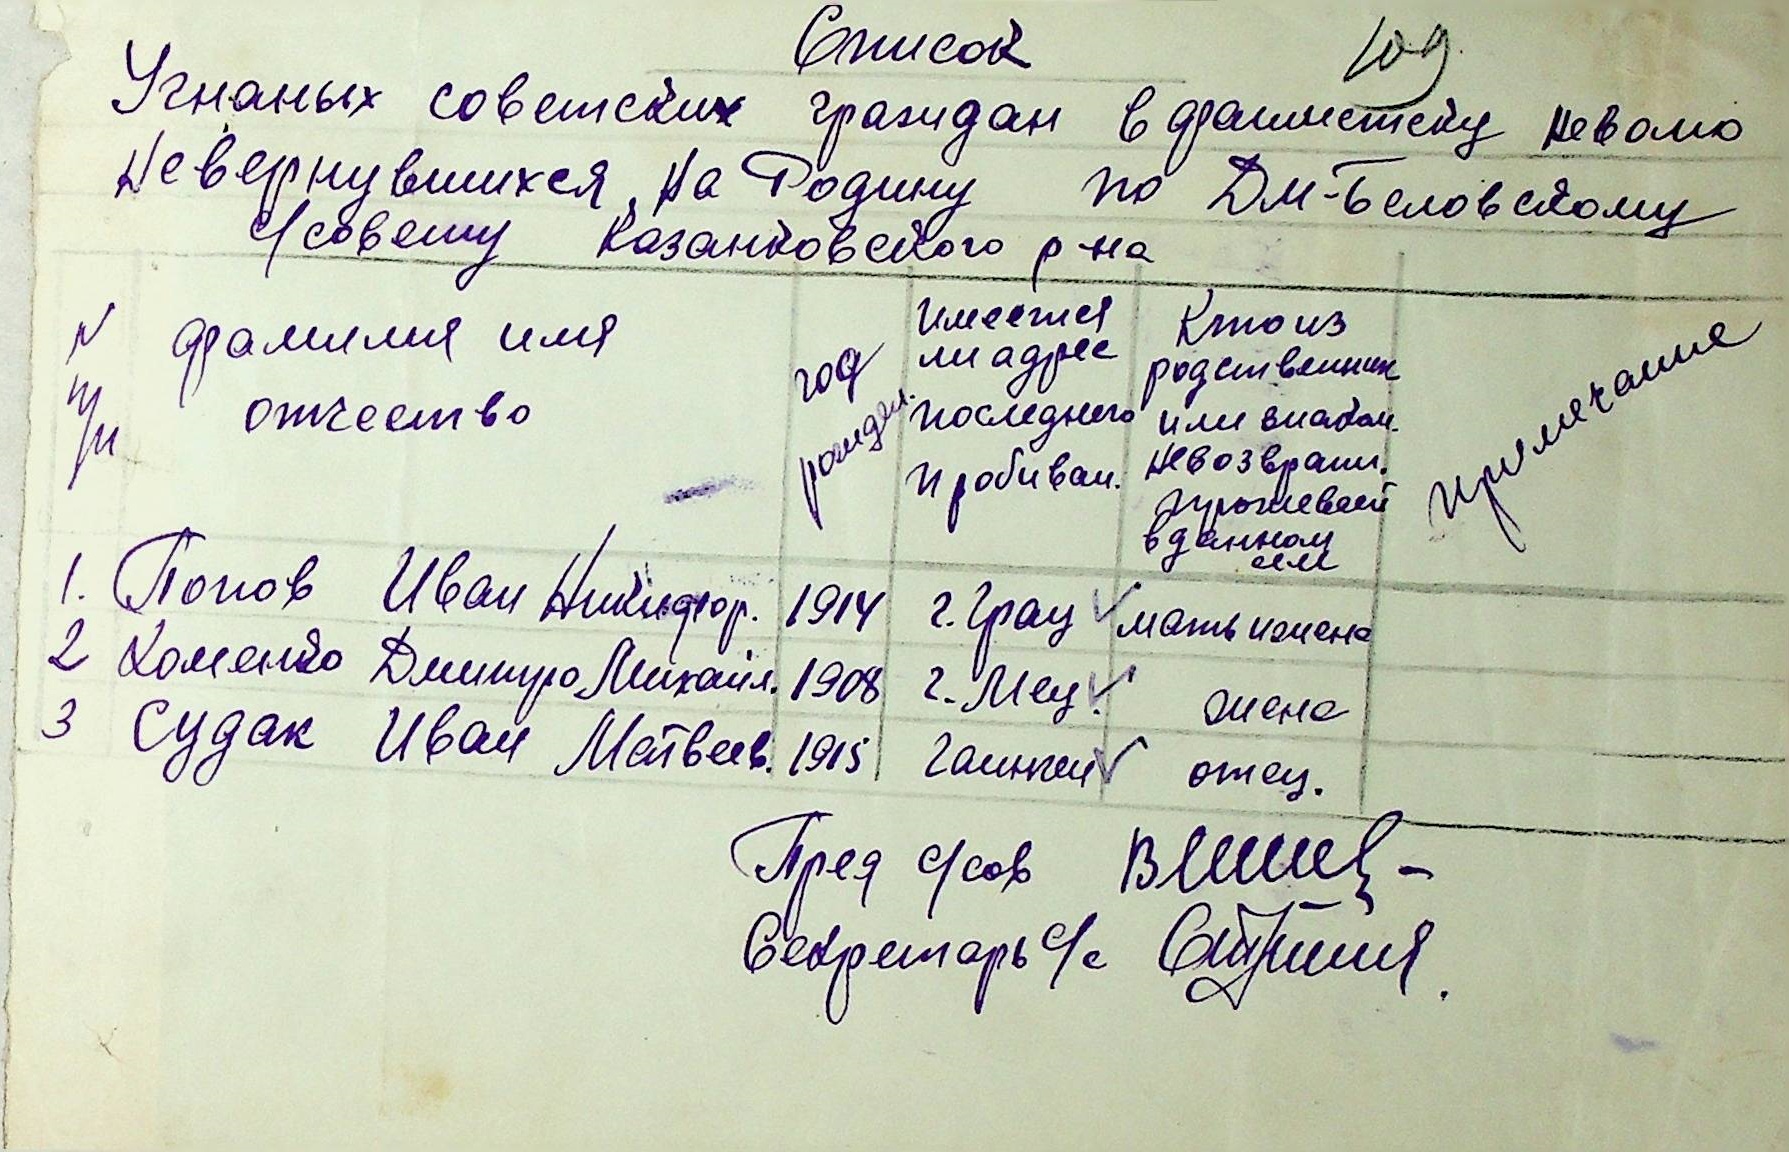 Список
109
Угнаных советских граждан в фашистску неволю
невернувшихся на Родину по Дм-Беловскому
с/совету Казанковского р-на
N п/п
фамилия имя отчество
год рожден.
имеется ли адрес последнего пробиван.
Кто из родственник или знаком. невозврати. проживает в данном селе
примечание
1. Попов Иван Никифор. 1914 г. Грац мать и жена
2 Хоменко Дмитро Михайл. 1908 г. Мец. жена
3 Судак Иван Матвеев. 1915 отец.
Пред с/сов
Секретарь с/с